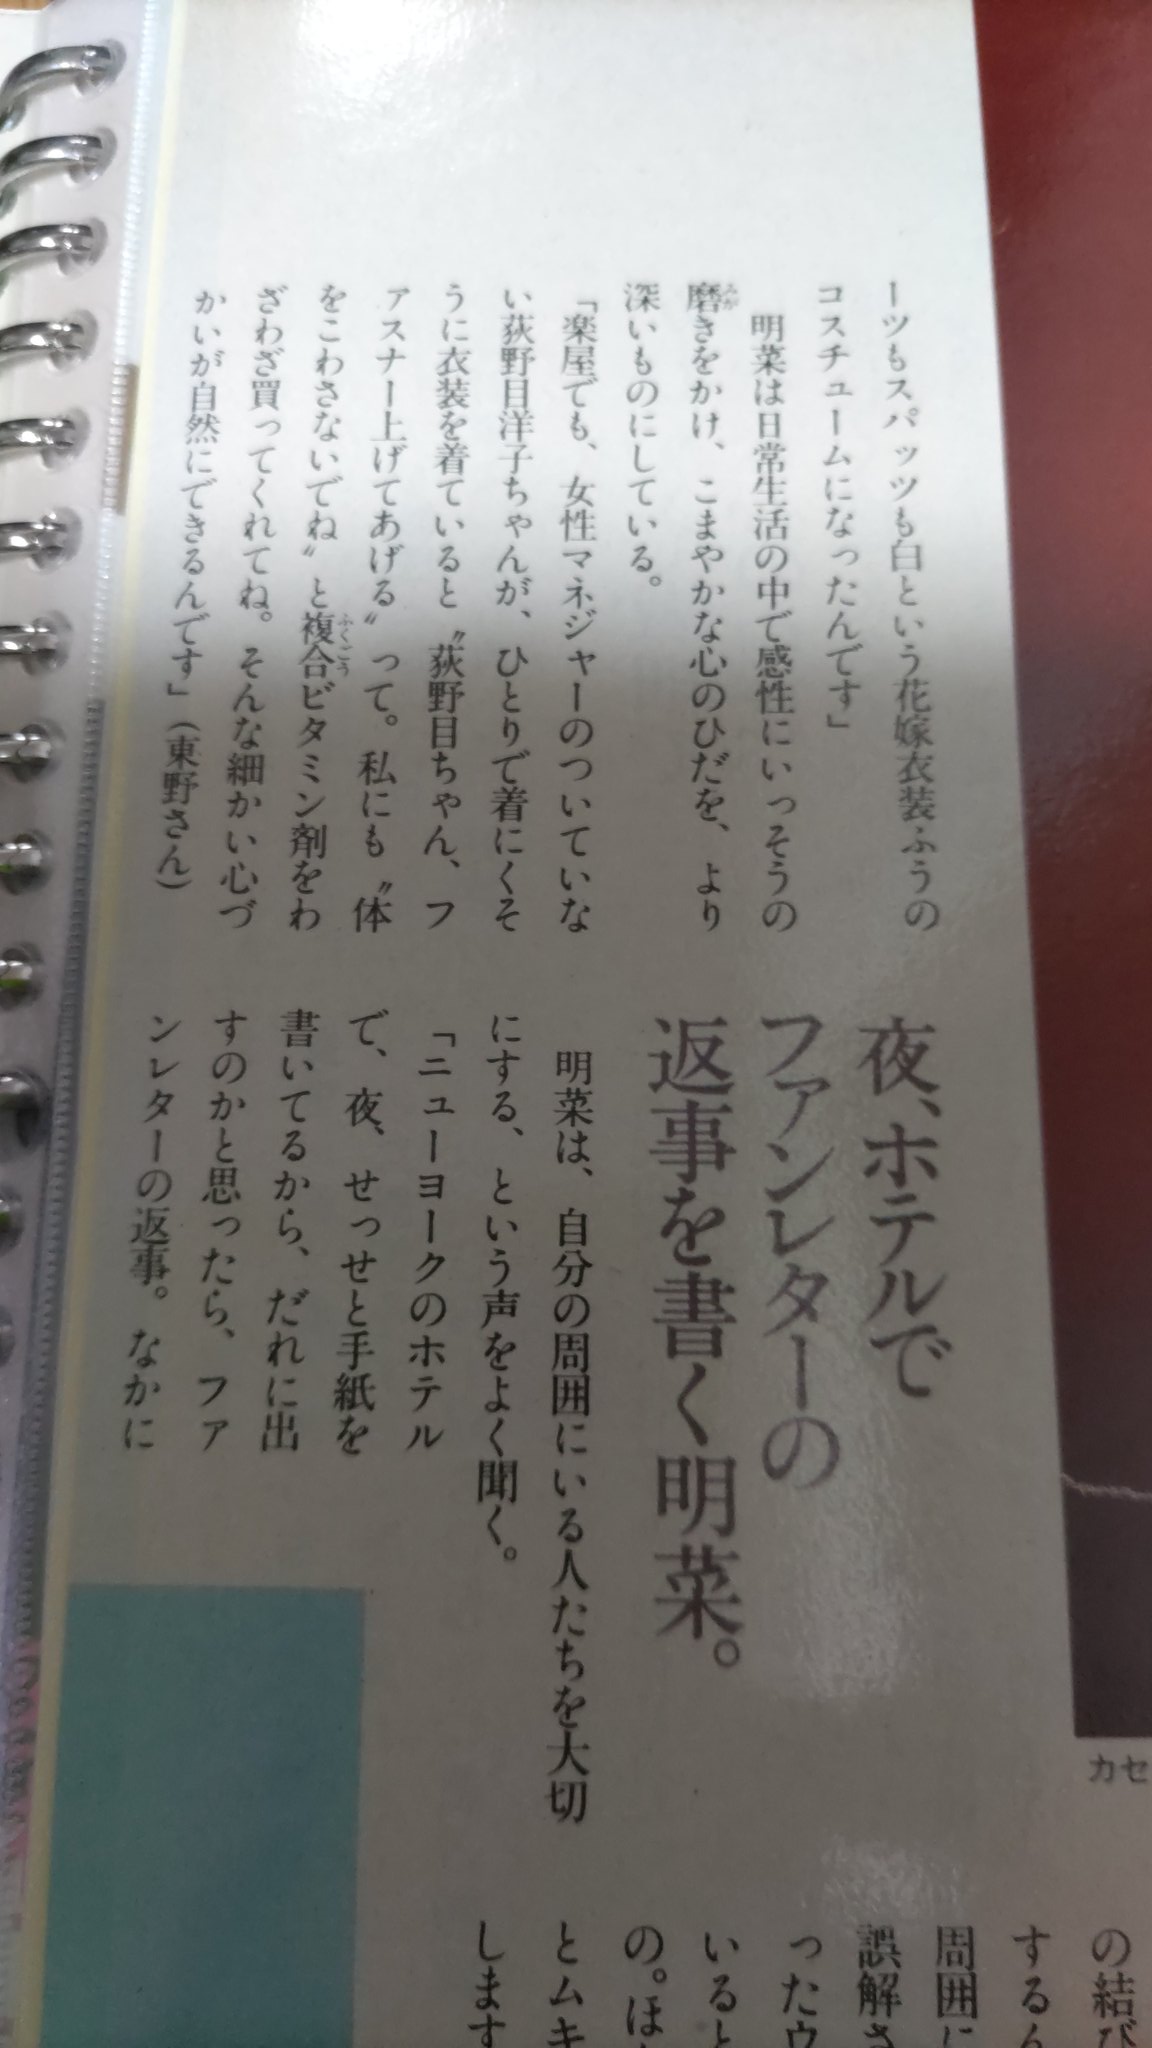 ーツもスパッツも白という花嫁衣装ふうの
コスチュームになったんです」
明菜は日常生活の中で感性にいっそうの
磨きをかけ、こまやかな心のひだを、より
みが
深いものにしている。
「楽屋でも、女性マネジャーのついていな
い荻野目洋子ちゃんが、ひとりで着にくそ
うに衣装を着ていると〝荻野目ちゃん、フ
ァスナー上げてあげる〟って。私にも〝体
をこわさないでね〟と複合ビタミン剤をわ
ふくごう
ざわざ買ってくれてね。そんな細かい心づ
かいが自然にできるんです」(東野さん)
夜、ホテルで
ファンレターの
返事を書く明菜。
明菜は、自分の周囲にいる人たちを大切
にする、という声をよく聞く。
「ニューヨークのホテル
で、夜、せっせと手紙を
書いてるから、だれに出
すのかと思ったら、ファ
ンレターの返事。なかに
カセ
の結び
するん
周囲に
誤解さ
ったウ
いると
の。ほ
とムキ
します